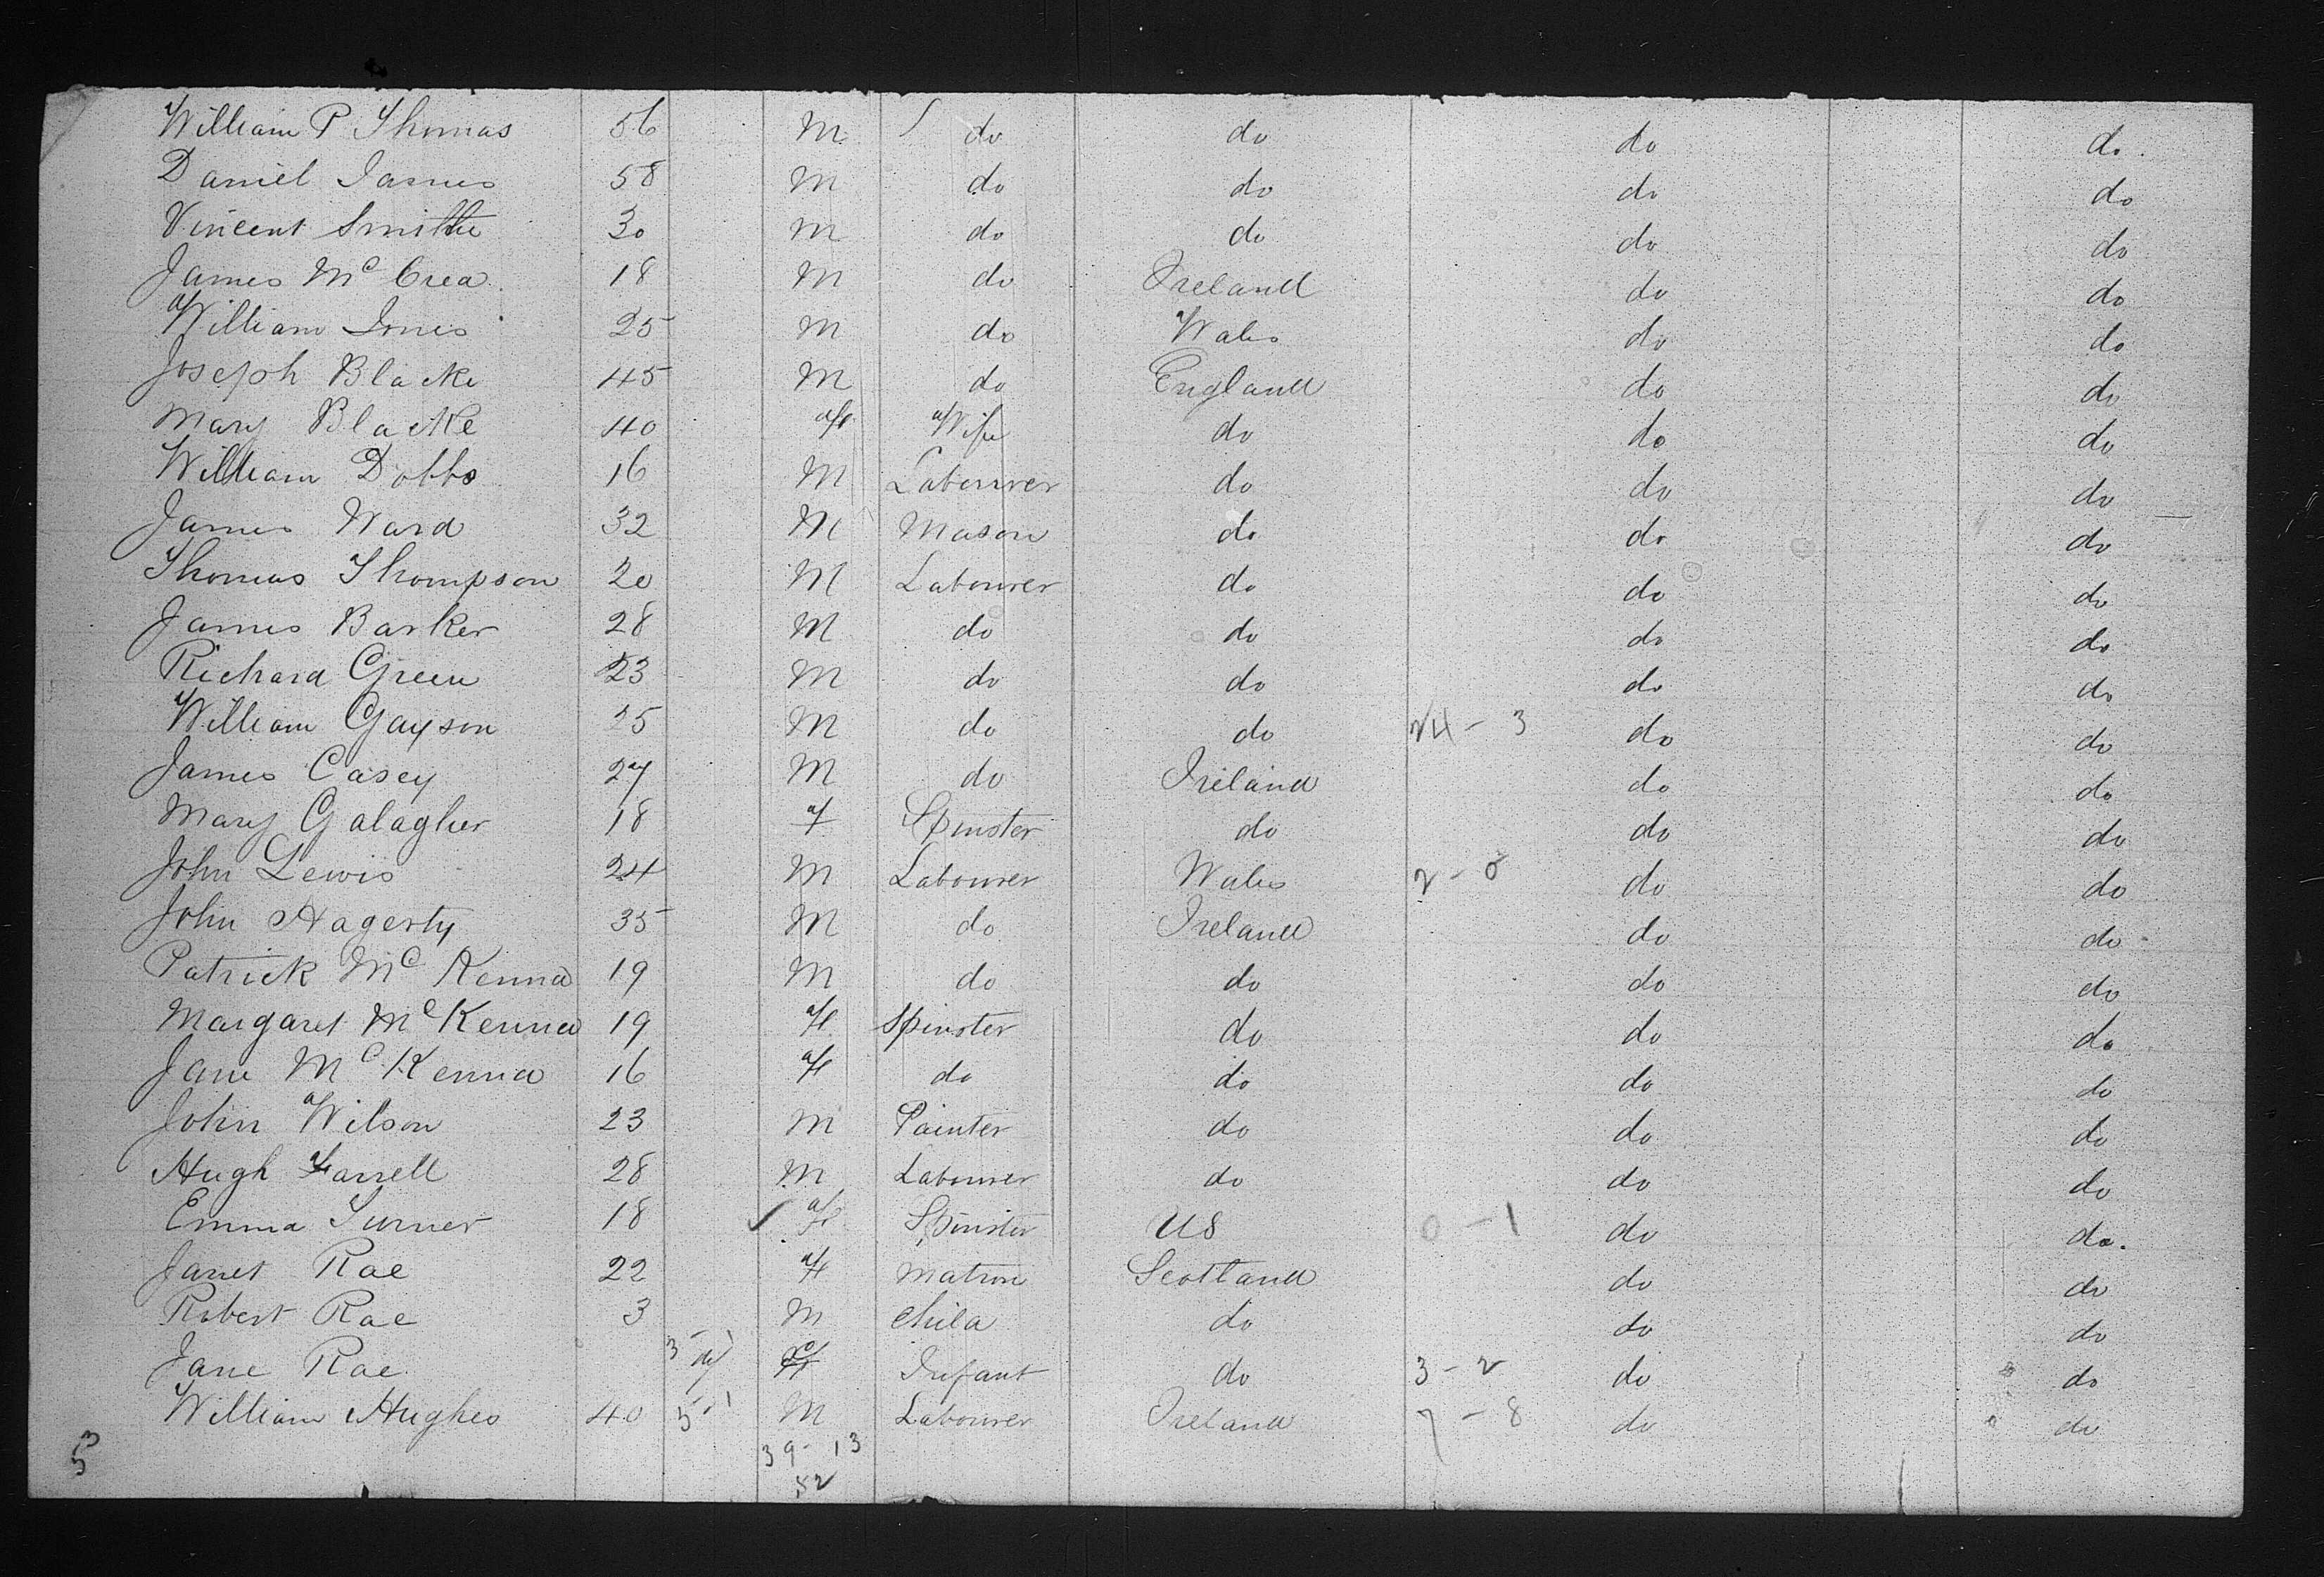 William P Thomas 56 M do do do do
Daniel James 58 M do do do do
Vincent Smithe 30 M do do do do
James Mc Crea 18 M do Ireland do do
William Jones 25 M do Wales do do
Joseph Blacke 45 M do England do do
Mary Blacke 40 F Wife do do do
William Dobbs 16 M Labourer do do do
James Ward 32 M Mason do do do
Thomas Thompson 20 M Labourer do do do
James Barker 28 M do do do do
Richard Green 23 M do do do do
William Gayson 25 M do do 24 - 3 do do
James Casey 27 M do Ireland do do
Mary Galagher 18 F Spinster do do do
John Lewis 24 M Labourer Wales 2 - 0 do do
John Hagerty 35 M do Ireland do do
Patrick Mc Kenna 19 M do do do do
Margaret Mc Kenna 19 F Spinster do do do
Jane Mc Kenna 16 F do do do do
John Wilson 23 M Painter do do do
Hugh Farrell 28 M Labourer do do do
Emma Turner 18 ✓ F Spinster US 0 - 1 do do
Janet Rae 22 F Matron Scotland do do
Robert Rae 3 M Child do do do
Jane Rae F Infant do 3 - 2 do do
William Hughes 40 5 - 1 M Labourer Ireland 7 - 8 do do
39 - 13
52
53